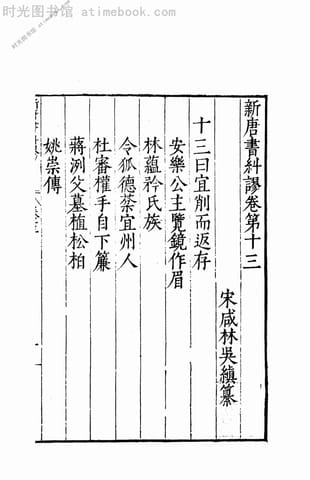 时光图书馆 atimebook.com
新唐書糾謬卷第十三
宋咸林吳縝纂
十三曰宜削而返存
安樂公主覽鏡作眉
林蘊矜氏族
令狐德棻宜州人
杜審權手自下簾
蔣洌父墓植松柏
姚崇傳